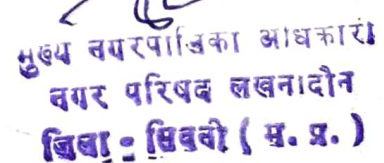 मुख्य नगरपालिका अधिकारी
नगर परिषद लखनादौन
जिला : सिवनी ( म. प्र. )